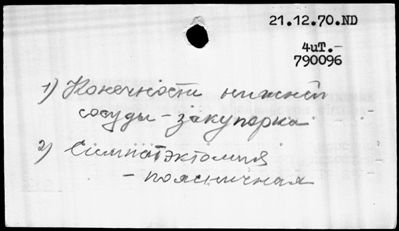 21.12.70.ND
4uT.-
790096
1) Конечности нижней
сосуды - закупорка
2) Симпатэктомия
- поясничная